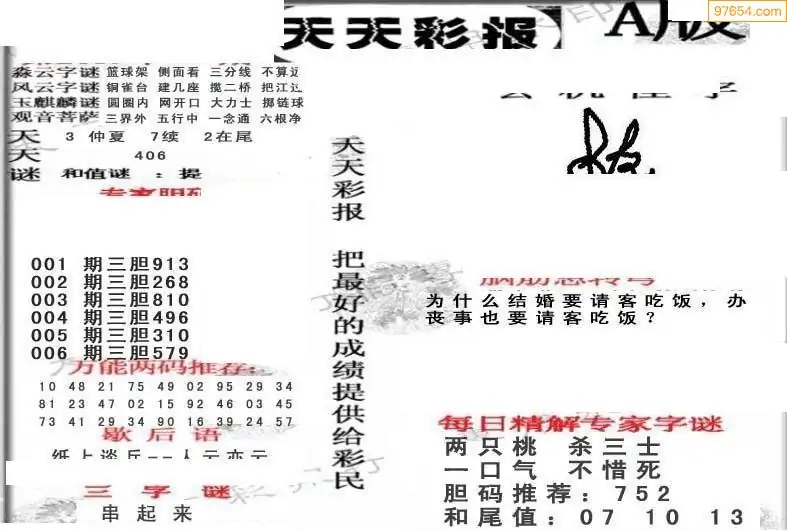 97654.com
天天彩报
A版
淼云字谜 篮球架 侧面看 三分线 不算边
风云字谜 铜雀台 建几座 揽二桥 把江过
玉麒麟谜 圆圈内 网开口 大力士 掷链球
观音菩萨 三界外 五行中 一念通 六根净
天 3 仲夏 7续 2在尾
天 406
谜 和值谜 : 提
天天彩报 把最好的成绩提供给彩民
001 期三胆913
002 期三胆268
003 期三胆810
004 期三胆496
005 期三胆310
006 期三胆579
万能两码推荐:
10 48 21 75 49 02 95 29 34
81 23 47 02 15 92 46 03 45
73 41 29 34 90 16 39 24 57
歇后语
纸上谈兵--人云亦云
三字谜
串起来
脑筋急转弯
为什么结婚要请客吃饭，办
丧事也要请客吃饭？
每日精解专家字谜
两只桃 杀三士
一口气 不惜死
胆码推荐: 752
和尾值: 07 10 13